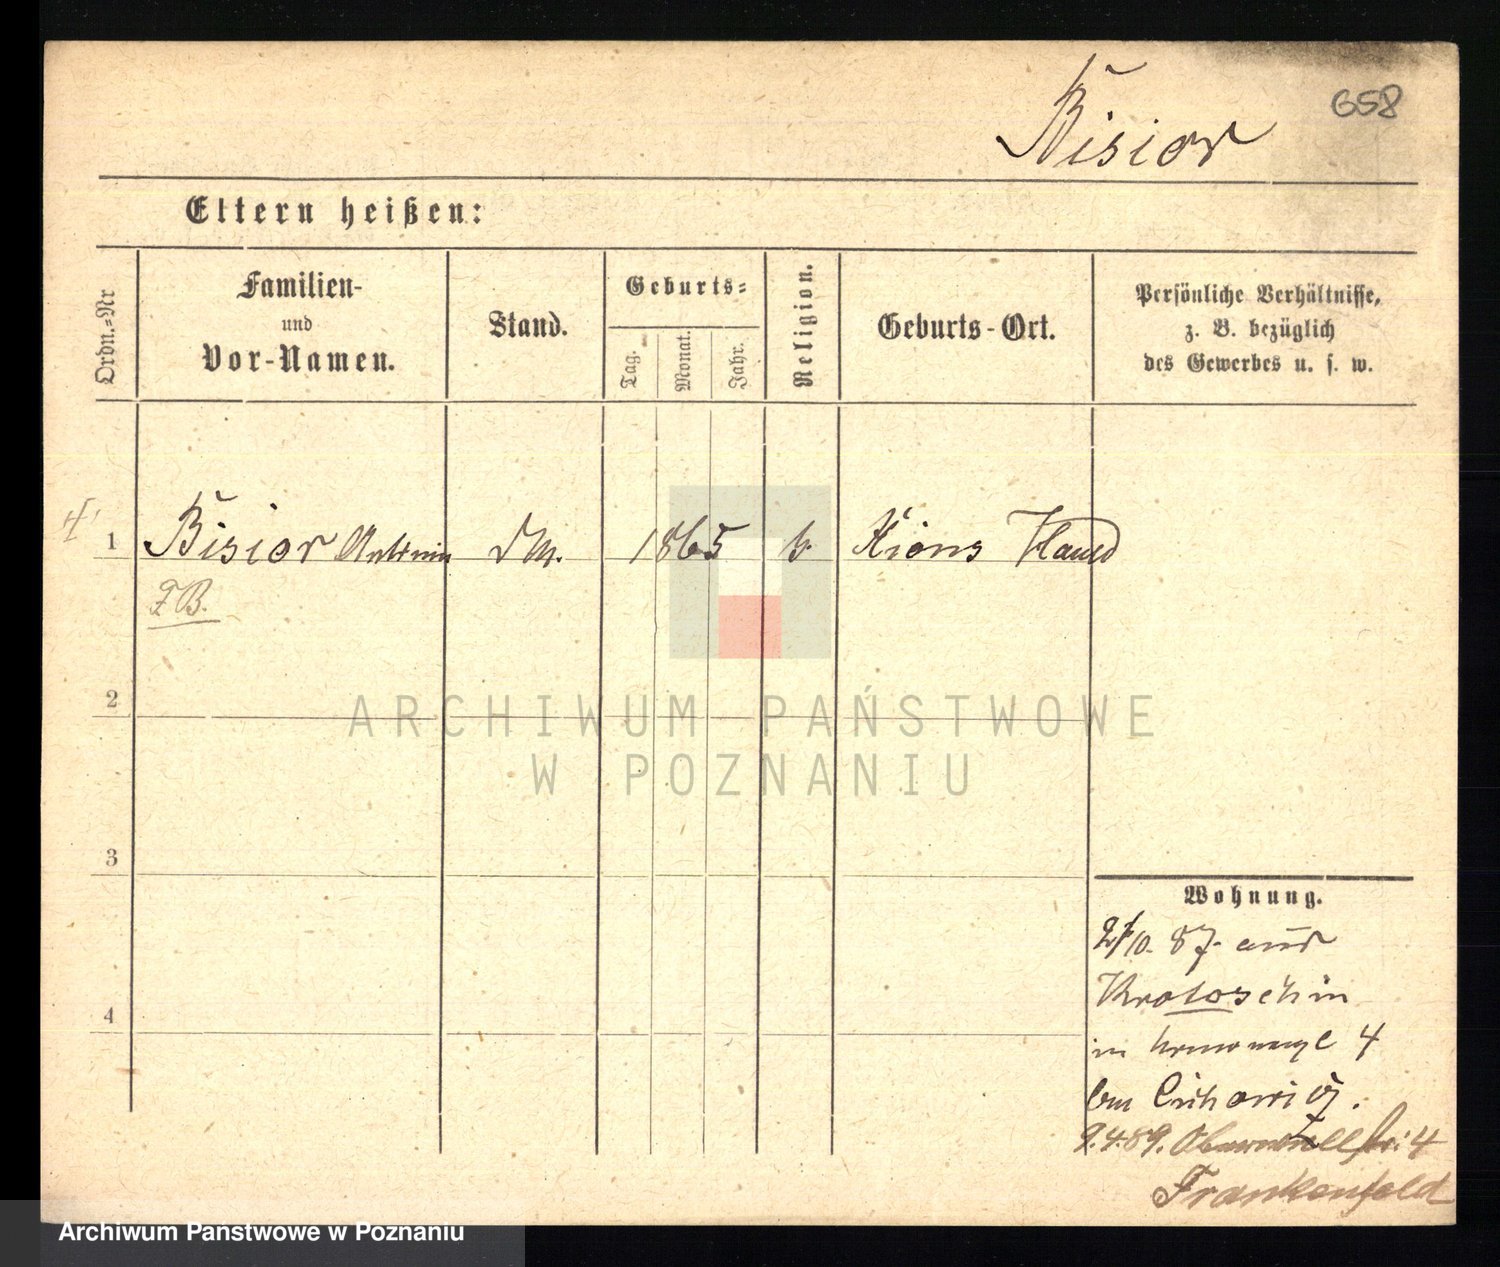 658
Bisior
Eltern heißen:
Ordn.=Nr
Familien-
und
Vor-Namen.
Stand.
Geburts=
Tag.
Monat.
Jahr.
Religion.
Geburts-Ort.
Persönliche Verhältnisse,
z. B. bezüglich
des Gewerbes u. s. w.
1 Bisior 1865 k. Xions
F B.
2
ARCHIWUM PAŃSTWOWE
W POZNANIU
3
4
Wohnung.
10. 87. aus
Krotoschin
in 4
9.4.89. 4
Frankenfeld
Archiwum Państwowe w Poznaniu